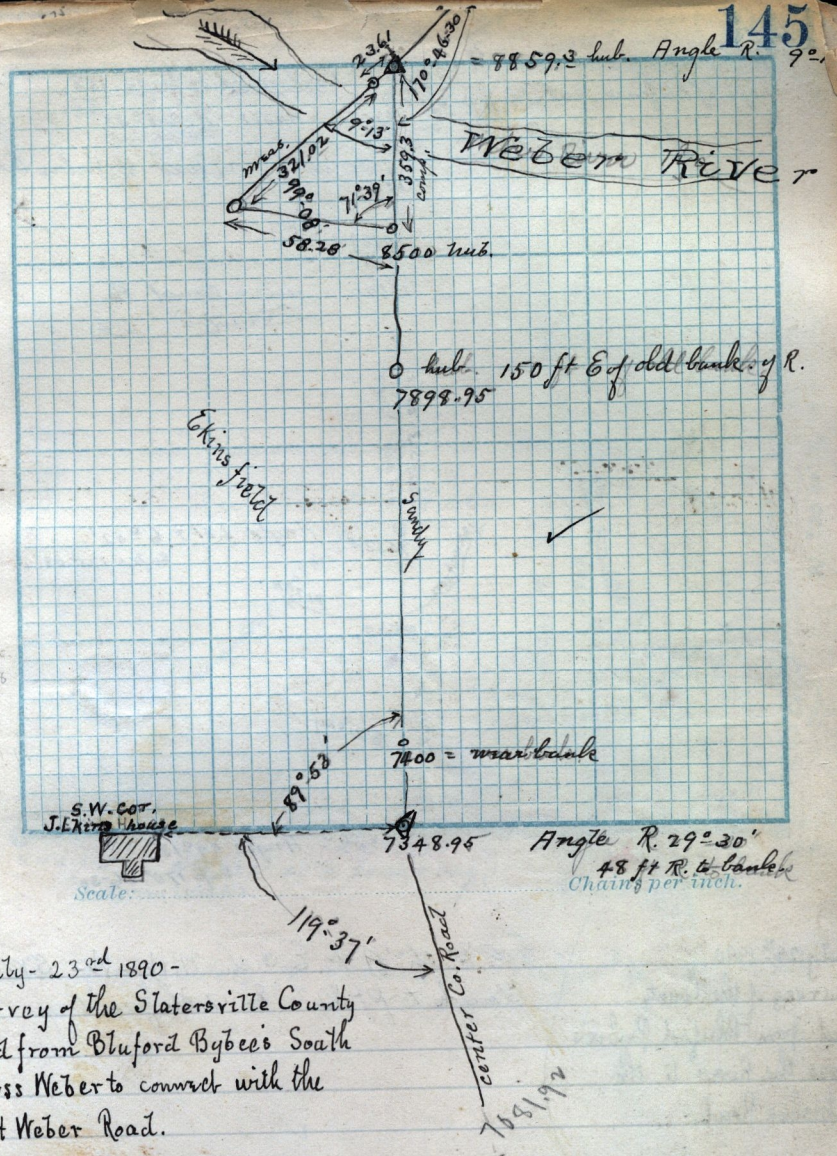 145
23.61
170°-46-30
= 8859.3 hub. Angle R. 9°
9°-13'
Weber River
meas.
321.02
359.3
comp.
99°-08'
71°-39'
58.28
8500 hub.
hub. 150 ft E of old bank of R.
7898.95
Ekins field
Sandy
89°-53'
7400 = near bank
S.W. Cor.
J. Ekins House
7348.95
Angle R. 29°-30'
48 ft R. to bank.
Scale:
Chains per inch.
119°-37'
center Co. Road
ly - 23rd 1890 -
rvey of the Slatersville County
d from Bluford Bybee's South
ss Weber to connect with the
t Weber Road.